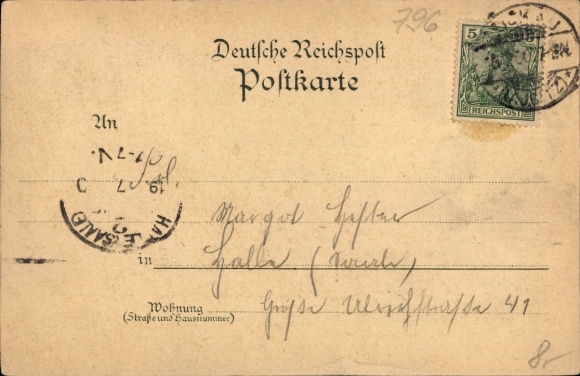 796
Deutsche Reichspost
Postkarte
5
REICHSPOST
An
Frl.
1-7 V.
19 7 0
HALLE (SAALE)
Margot Hefter
in Halle (Saale)
Wohnung
(Straße und Hausnummer)
Große Ulrichstraße 41
8.-